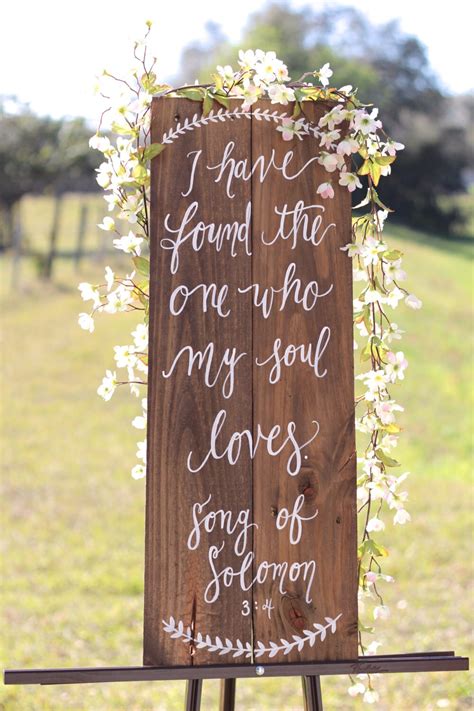 I have
found the
one who
my soul
loves.
Song of
Solomon
3:4